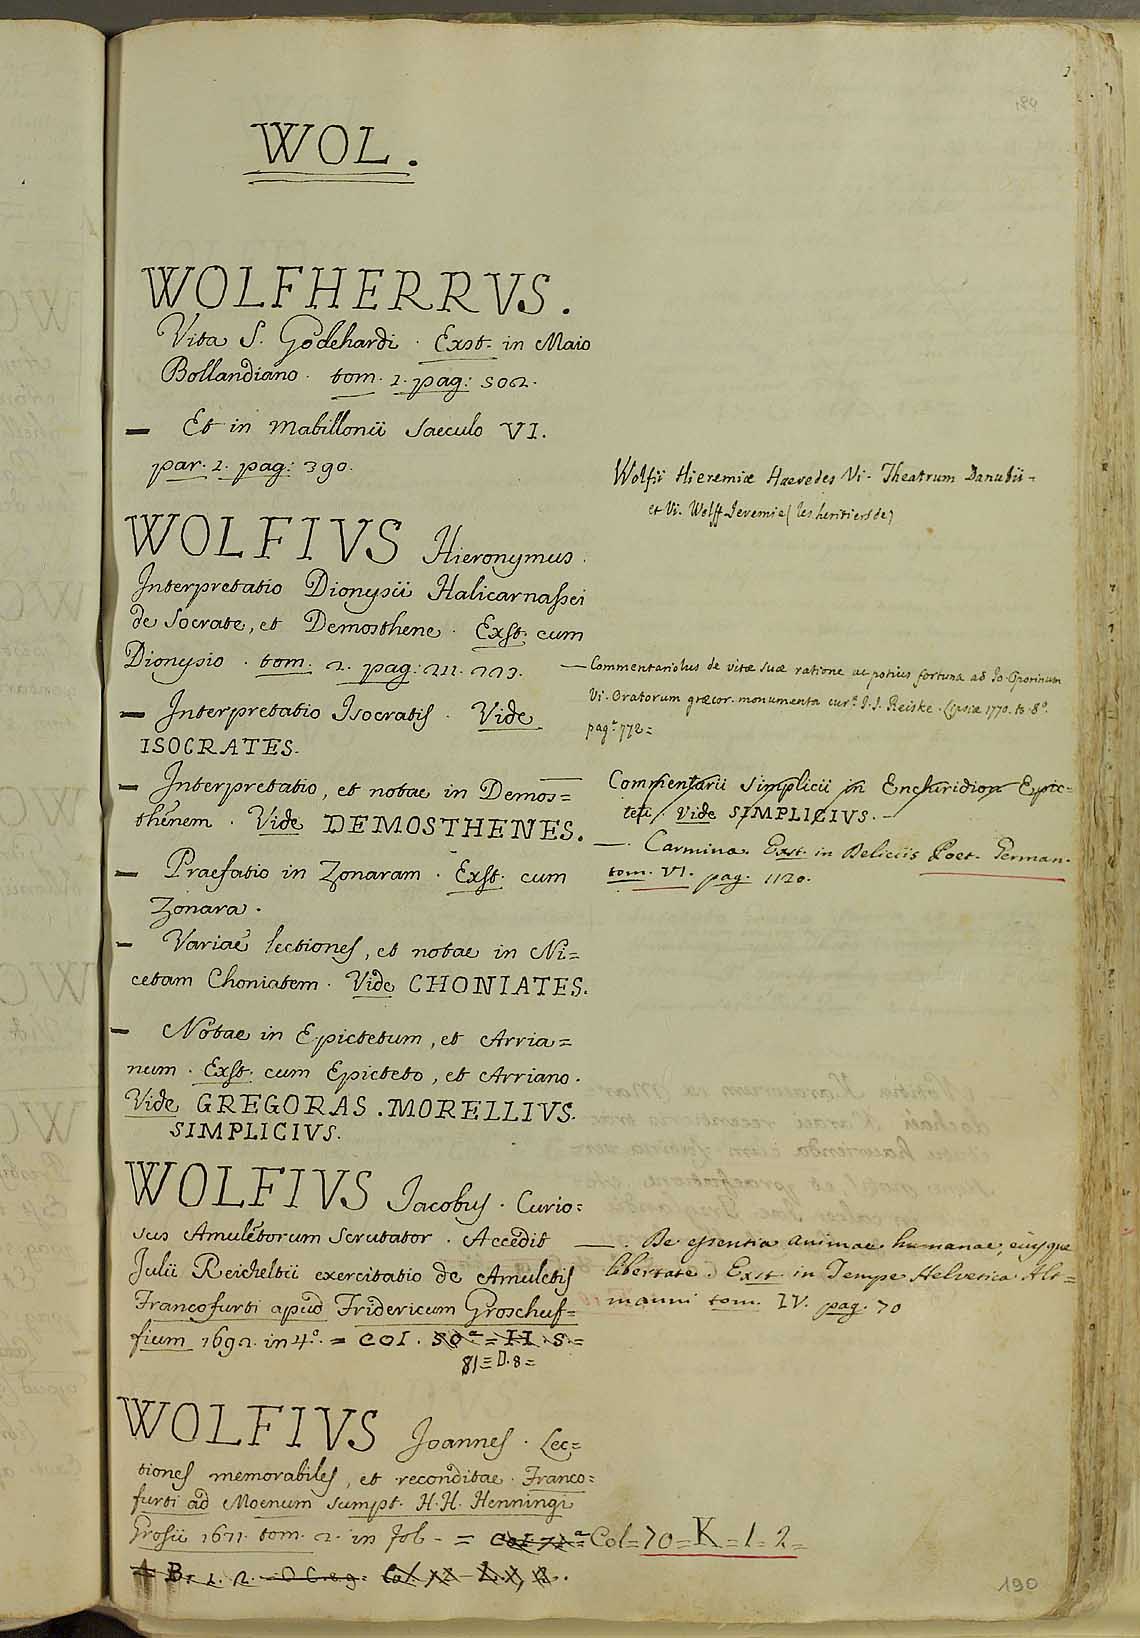 190
WOL.
WOLFHERRVS.
Vita S. Godehardi. Exst. in Maio
Bollandiano. tom. 1. pag: 502.
— Et in Mabillonii Saeculo VI.
par. 1. pag: 390.
WOLFIVS Hieronymus.
Interpretatio Dionysii Halicarnassei
de Socrate, et Demosthene. Exst. cum
Dionysio. tom. 2. pag: 211. 223.
— Interpretatio Isocratis. Vide
ISOCRATES.
— Interpretatio, et notae in Demos=
thenem. Vide DEMOSTHENES.
— Praefatio in Zonaram. Exst. cum
Zonara.
— Variae lectiones, et notae in Ni=
cetam Choniatem. Vide CHONIATES.
— Notae in Epictetum, et Arria=
num. Exst. cum Epicteto, et Arriano.
Vide GREGORAS. MORELLIVS.
SIMPLICIVS.
WOLFIVS Jacobus. Curio=
sus Amuletorum Scrutator. Accedit
Julii Reicheltii exercitatio de Amuletis
Francofurti apud Fridericum Groschuf=
fium 1692. in 4º. = COL. 80ª = H. S. =
81 = D. 8 =
WOLFIVS Joannes. Lec=
tiones memorabiles, et reconditae. Franco=
furti ad Moenum sumpt. H. H. Henningi
Grosii 1671. tom. 2. in fol. = Col = 70 = K = 1 = 2 =
Wolfii Hieremiæ Haeredes Vi. Theatrum Danubii =
et Vi. Wolff Jeremie (les heritiers de)
— Commentariolus de vitæ suæ ratione ac potius fortuna ad Jo. Oporinum
Vi. Oratorum græcor. monumenta cur. J. J. Reiske. Lipsiæ 1770. to. 8º.
pag. 772 =
Commentarii Simplicii in Enchiridion Epic=
teti. Vide SIMPLICIVS.
—. Carmina. Exst. in Deliciis Poet. German.
tom. VI. pag. 1120.
—. De essentia animae humanae, ejusque
libertate. Exst. in Tempe Helvetica Alt=
manni tom. IV. pag. 70
190